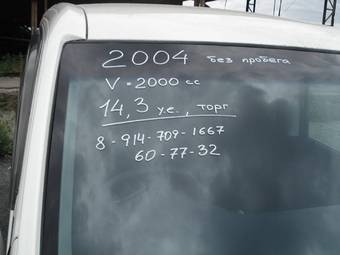 2004 без пробега
V = 2000 cc
14,3 у.е., торг
8 - 914-709-1667
60-77-32